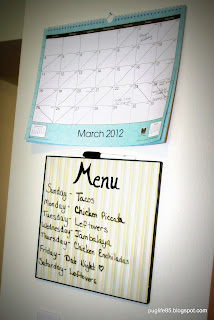 March 2012
Menu
Sunday - Tacos
Monday - Chicken Piccata
Tuesday - Leftovers
Wednesday - Jambalaya
Thursday - Chicken Enchiladas
Friday - Date Night ♡
Saturday - Leftovers
puglife85.blogspot.com